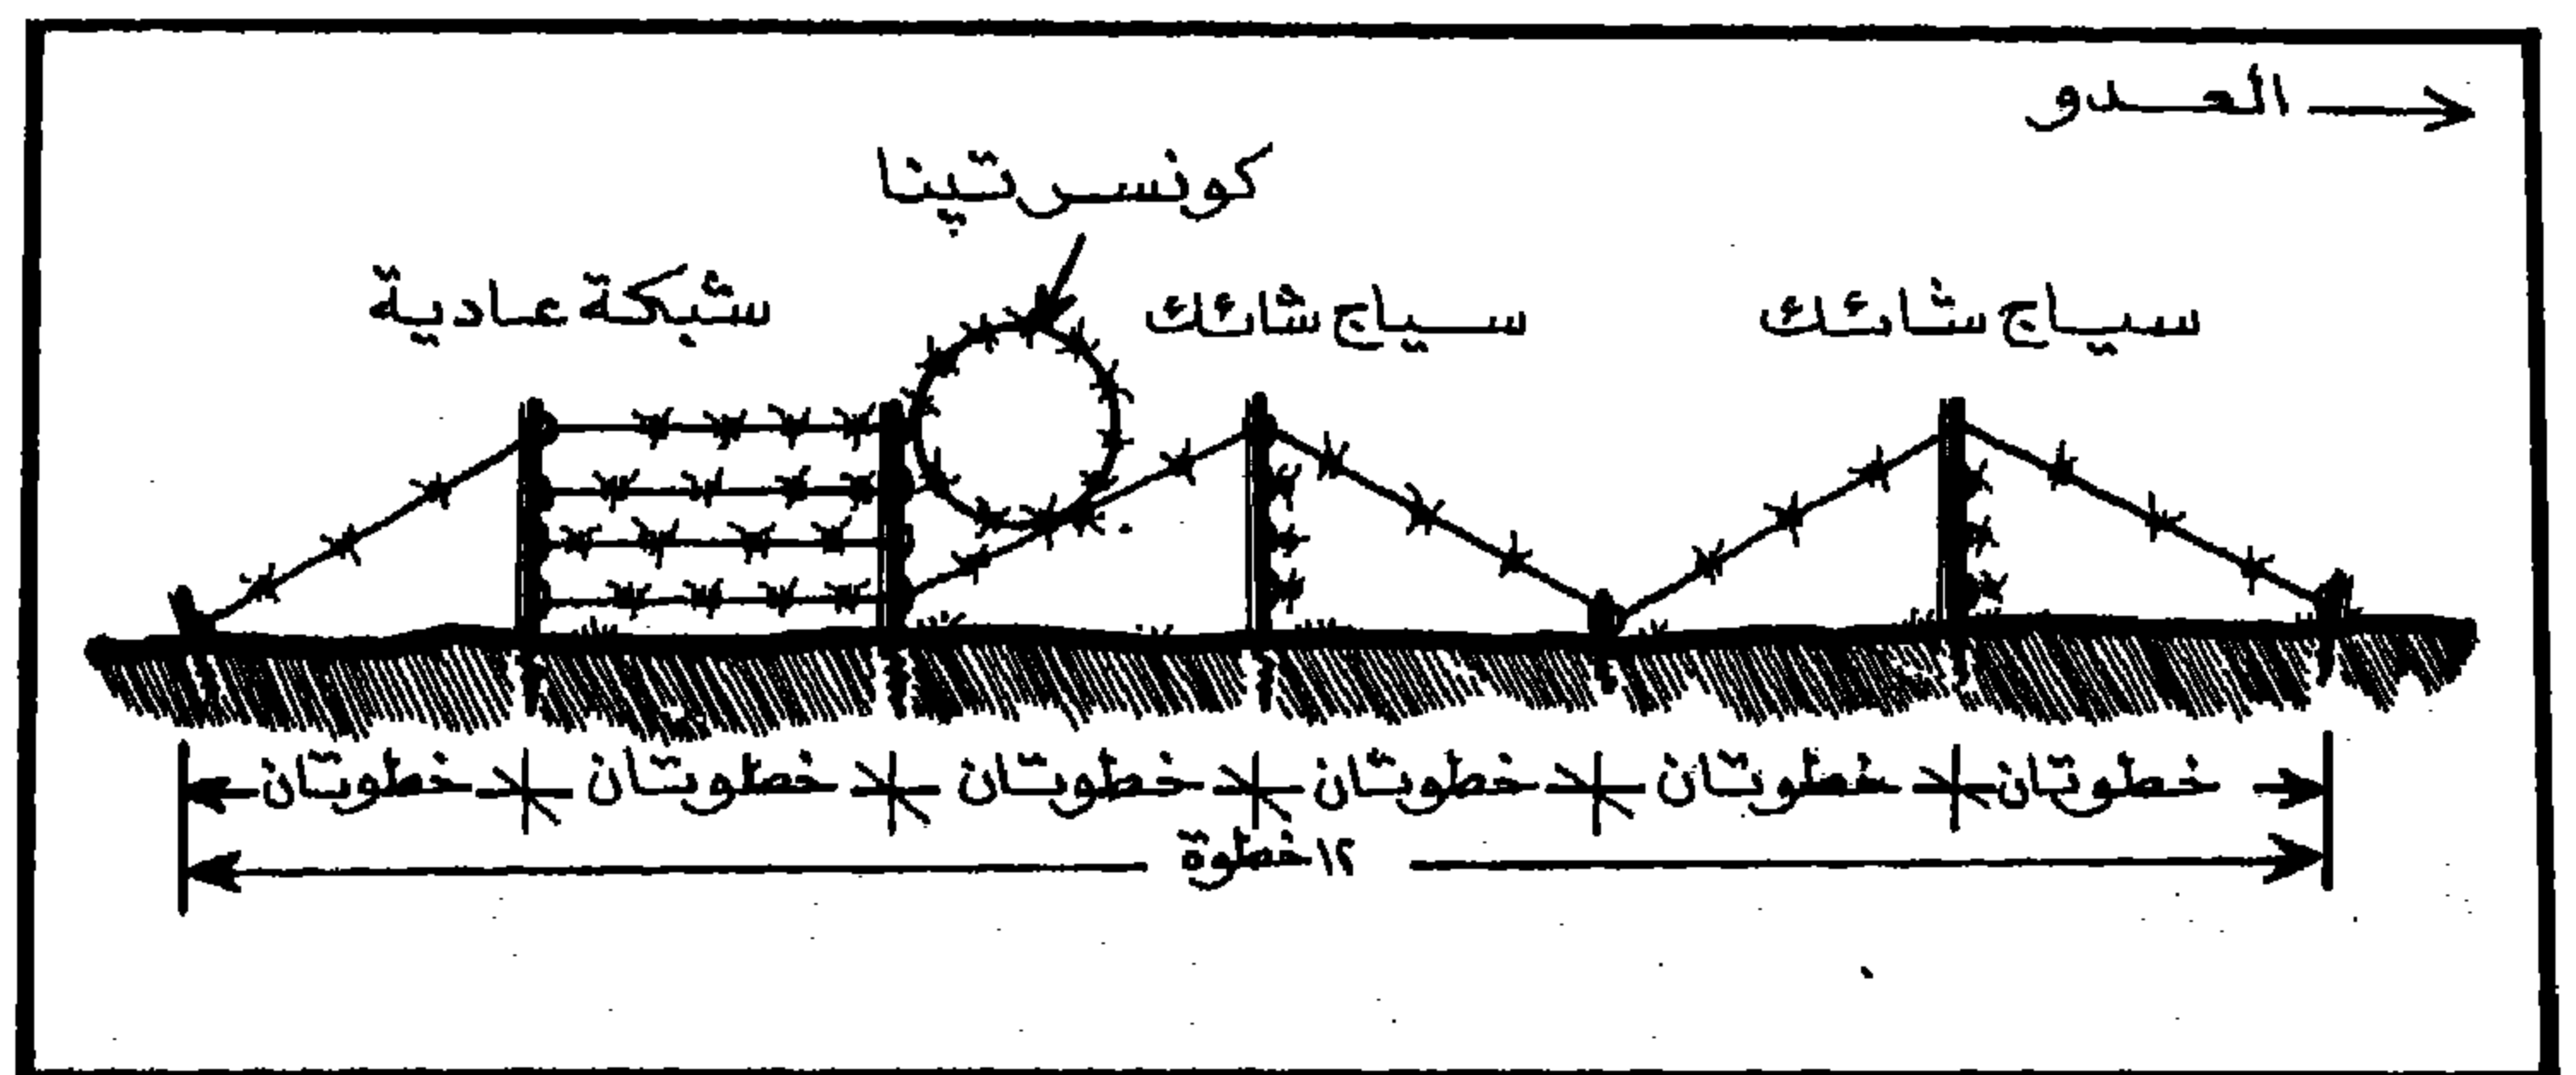 العدو
كونسرتپنا
سياج شائك
سياج شائك
شبكة عادية
خطوتان خطوتان خطوتان خطوتان خطوتان خطوتان
١٢ خطوة